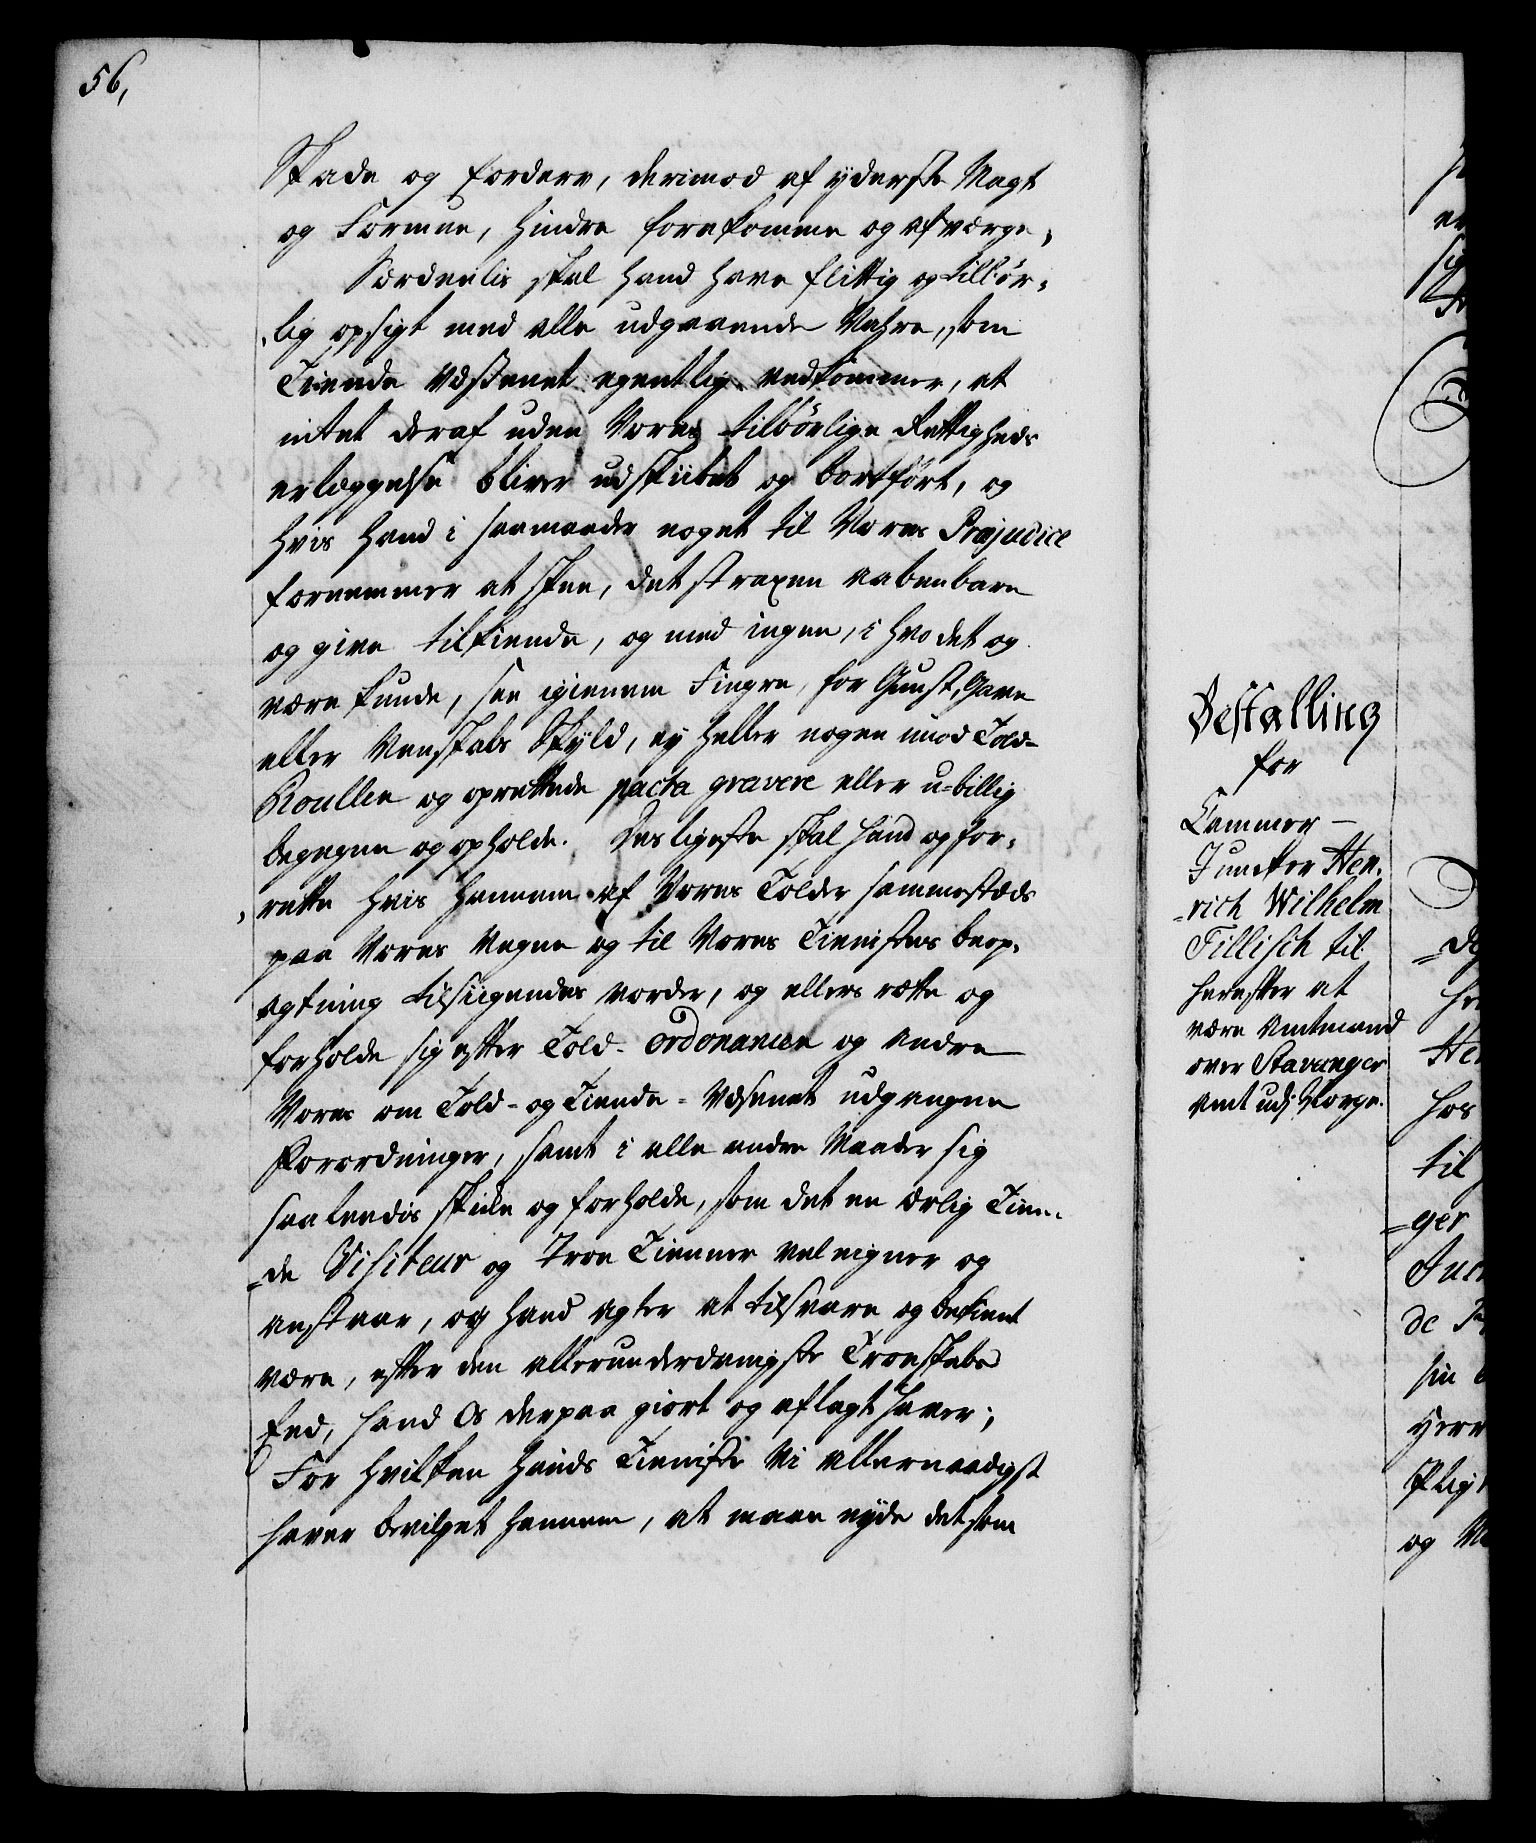 56,
Skade og fordærv, derimod af yderste Magt
og Formue, hindre forekomme og afværge,
Særdeelis skal hand have flittig og tilbør,
,lig opsigt med alle udgaaende Wahre, som
Tiende Væsenet egentlig vedkommer, at
intet deraf uden Vores tilbørlige Rettigheds
erlæggelse bliver udskibet og bortført, og
hvis hand i saamaader noget til Vores Præjudice
fornemmer at skee, det straxen aabenbare
og give tilkiende, og med ingen, i hvo det og
være kunde, see igiennem Fingre, for Gunst, Gave
eller Venskabs Skyld, ey heller nogen imod Told-
Roullen og oprettede pacta gravere eller u-billig
begegne og opholde. Desligeste skal hand og for,
,rette hvis hannem af Vores Tolder sammestæds
paa Vores Vegne og til Vores Tienistes beop,
agtning tilsiigendes vorder, og ellers rette og
forholde sig efter Told- ordonancen og andre
Vores om Told- og Tiende- Væsenet udgangne
Forordninger, samt i alle andre Maader sig
saaleedis skicke og forholde, som det en ærlig Tien-
-de Visiteur og Troe Tienner vel eigner og
anstaar, og hand agter at tilsvare og bekient
være, efter den allerunderdanigste Troeskabs
Eed, hand Os derpaa giort og aflagt haver;
For hvilken hands Tieniste Vi allernaadigst
haver bevilget hannem, at maae nyde det som
Bestalling
for
Cammer-
Juncker Hen-
-rich Wilhelm
Tillisch til
herefter at
være Amtmand
over Stavanger
Amt udj Norge.